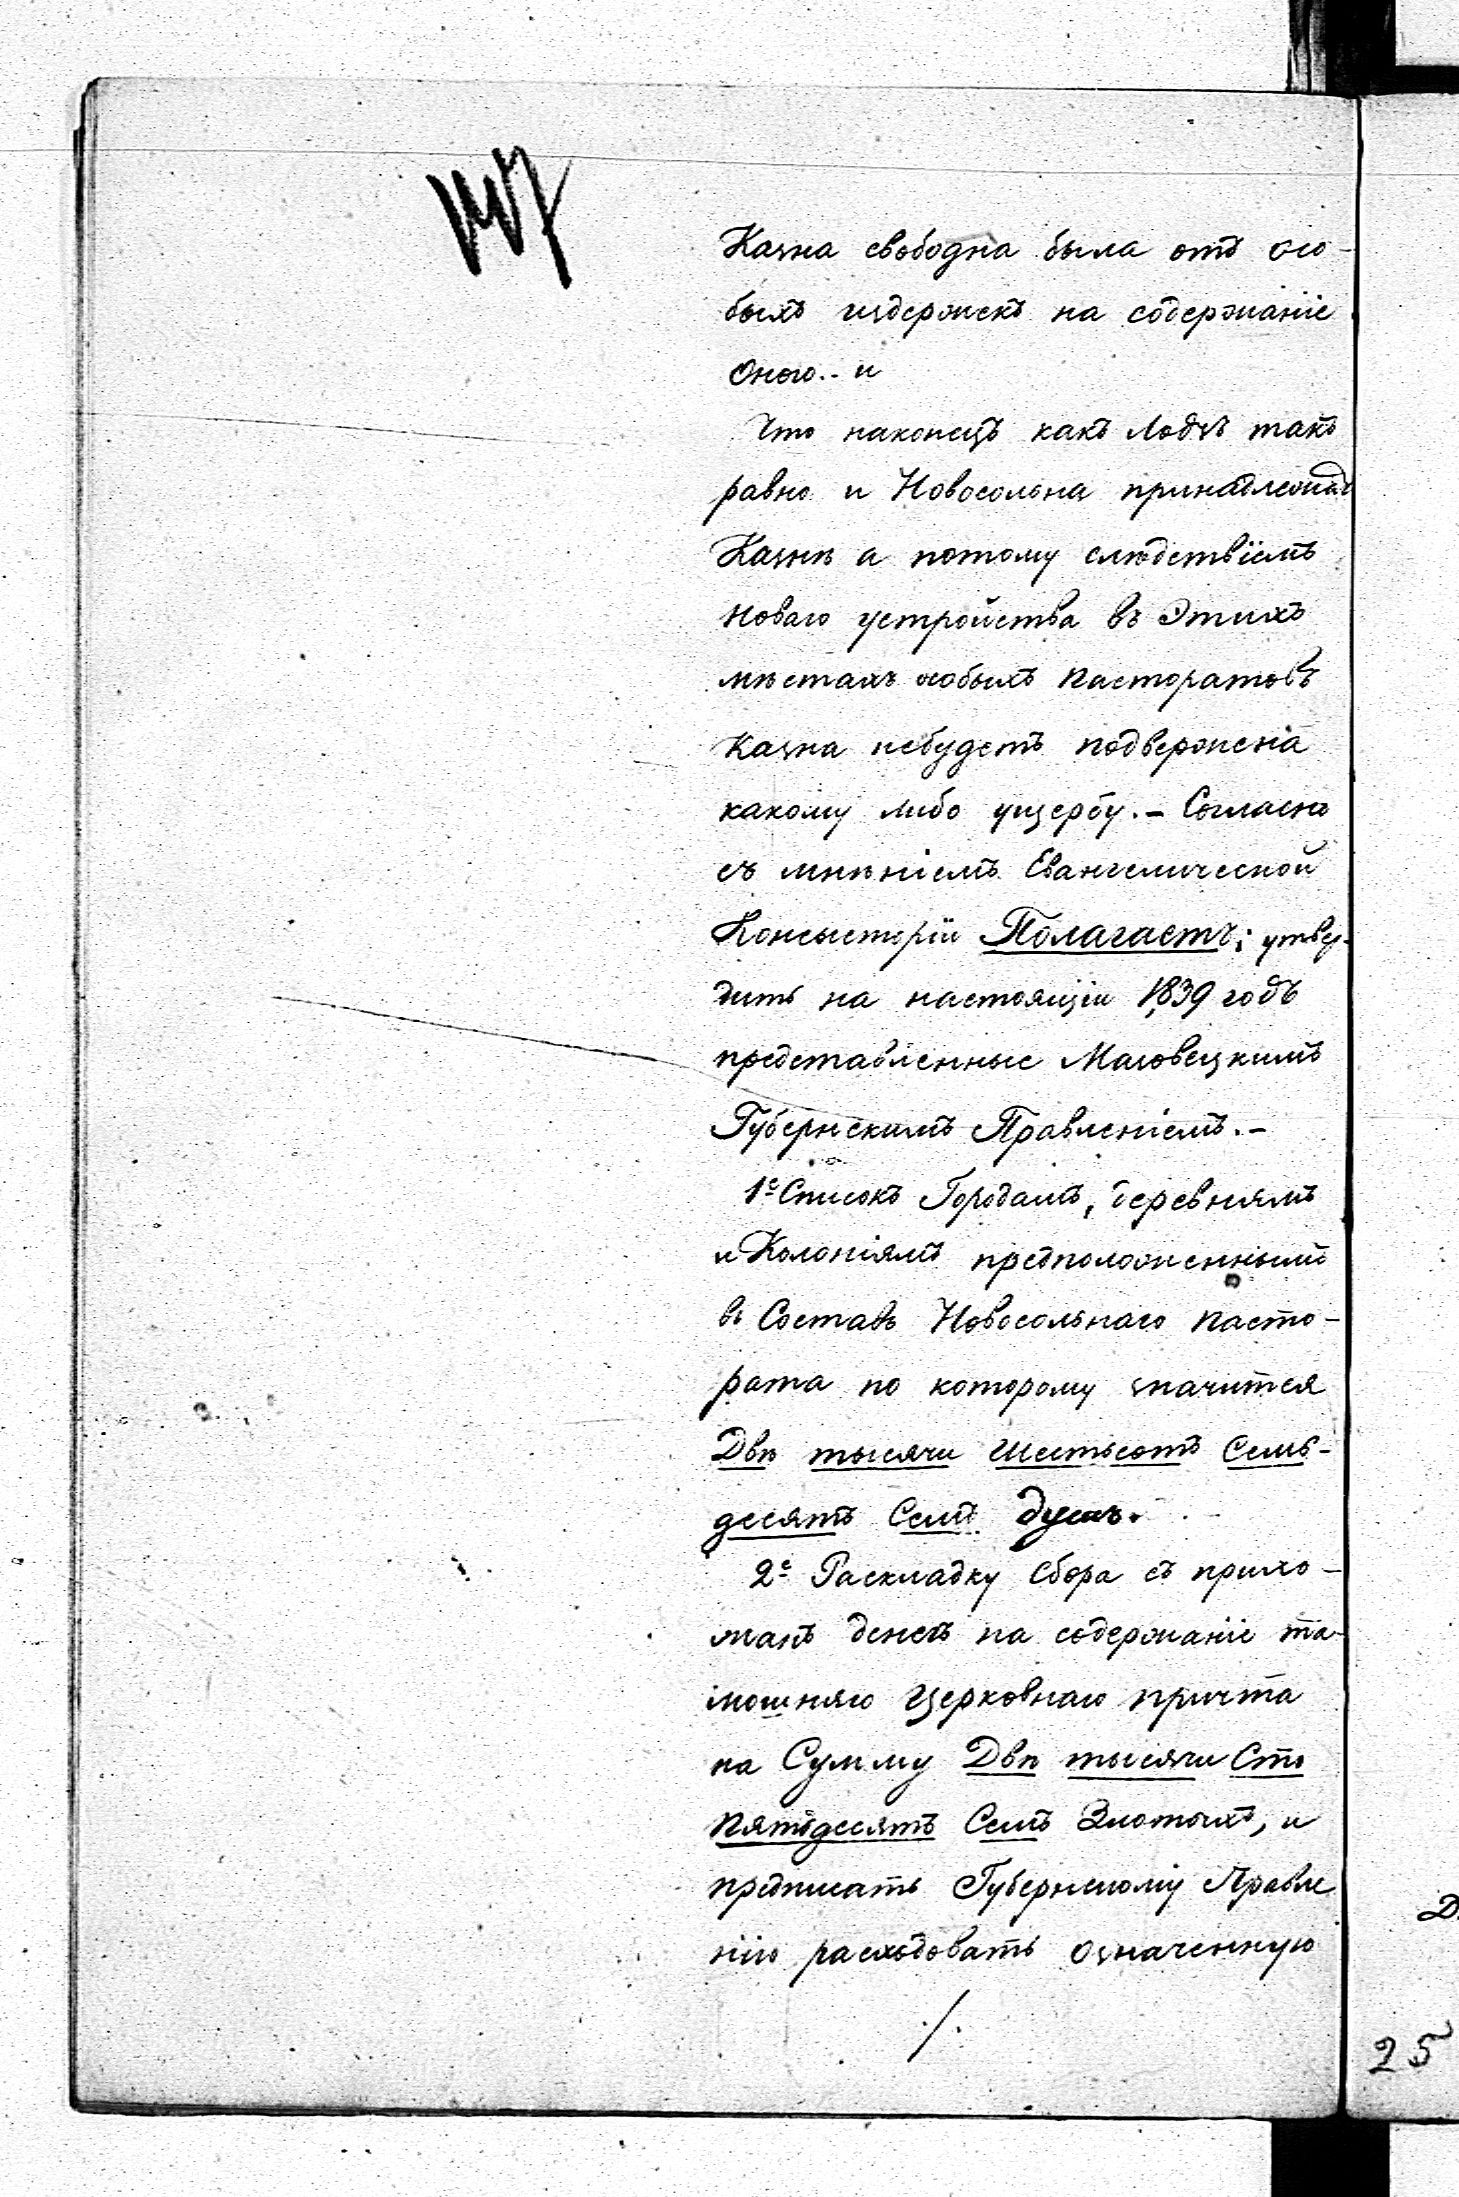 Казна свободна была отъ осо-
быхъ издержекъ на содержаніе
Оного.- и
Что наконецъ какъ Лодзь такъ
равно и Новосольна принадлежатъ
Казнѣ а потому слѣдствіемъ
новаго устройства въ Этихъ
мѣстахъ особыхъ пасторатовъ
Казна небудетъ подвержена
какому либо ущербу.- Согласно
съ мнѣніемъ Евангелической
Консысторіи Полагаетъ; утвер-
дить на настоящіи 1839 годъ
представленные Мазовецкимъ
Губернскимъ Правленіемъ.-
1е Списокъ Городамъ, деревнямъ
и Колоніямъ предположеннымъ
въ Составъ Новосольнаго Пасто-
рата по которому значится
Двѣ тысячи шестьсотъ Семь-
десятъ Семь душъ.
2е Раскладку Сбора съ прихо-
жанъ денегъ на содержаніе та-
мошняго Церковнаго причта
на Сумму Двѣ тысячи Сто
Пятьдесятъ Семь Злотыхъ, и
предписать Губернскому Правле
нію расходовать Означенную
./.
25